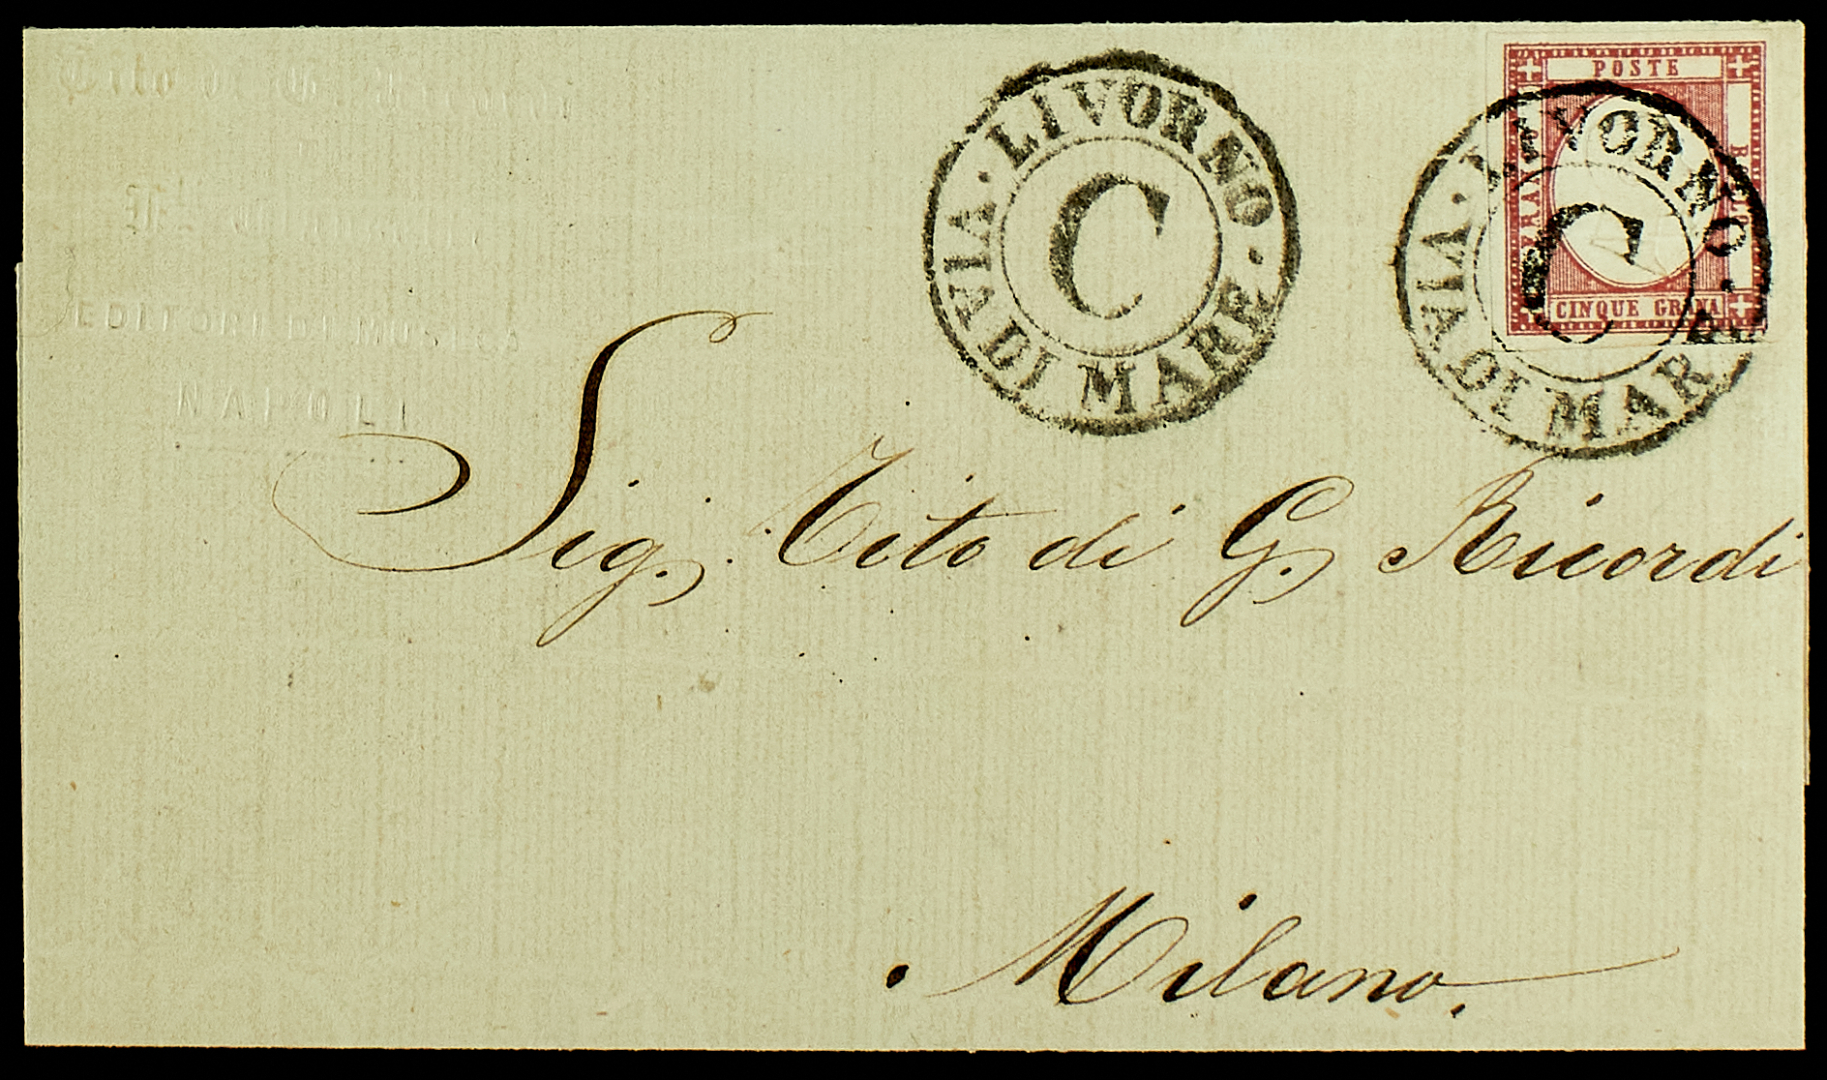 Tito di G. Ricordi
EDITORI DI MUSICA
NAPOLI
LIVORNO · VIA DI MARE ·
C
POSTE
FRANCO
BOLLO
CINQUE GRANA
LIVORNO · VIA DI MARE ·
C
Sig. Tito di G. Ricordi
Milano.